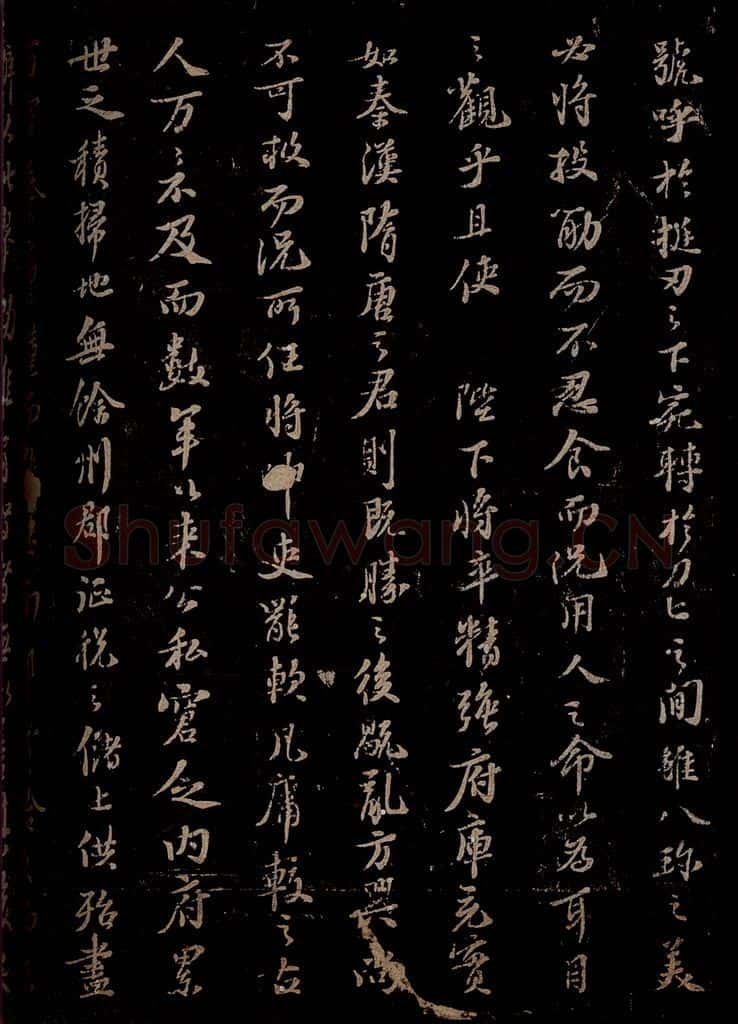 號呼於挺刃之下宛轉於刀匕之間雖八珍之美
必將投筯而不忍食而況用人之命以為耳目
之觀乎且使 陛下將卒精強府庫充實
如秦漢隋唐之君則既勝之後禍亂方興尚
不可救而況所任將吏罷軟凡庸較之古
人万之不及而數年以來公私窘乏內府累
世之積掃地無餘州郡征稅之儲上供殆盡
Shufawang.CN